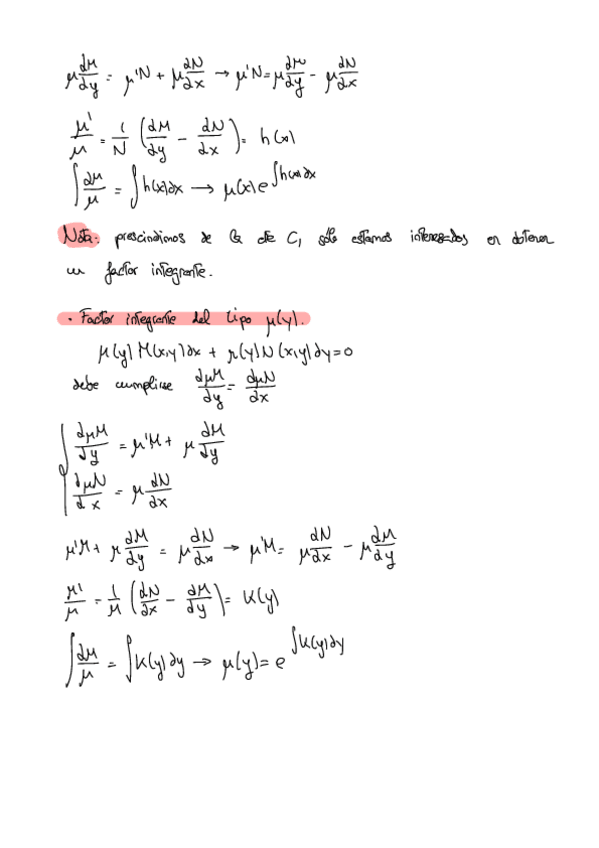 μ dM/dy = μ'N + μ dN/dx → μ'N = μ dM/dy - μ dN/dx
μ'/μ = 1/N (dM/dy - dN/dx) = h(x)
∫ dμ/μ = ∫ h(x)dx → μ(x) e^∫h(x)dx
Nota: prescindimos de la cte C, solo estamos interesados en obtener
un factor integrante.
· Factor integrante del tipo μ(y).
μ(y) M(x,y)dx + μ(y) N(x,y)dy = 0
debe cumplirse dμM/dy = dμN/dx
dμM/dy = μ'M + μ dM/dy
dμN/dx = μ dN/dx
μ'M + μ dM/dy = μ dN/dx → μ'M = μ dN/dx - μ dM/dy
μ'/μ = 1/M (dN/dx - dM/dy) = K(y)
∫ dμ/μ = ∫ K(y)dy → μ(y) = e^∫K(y)dy